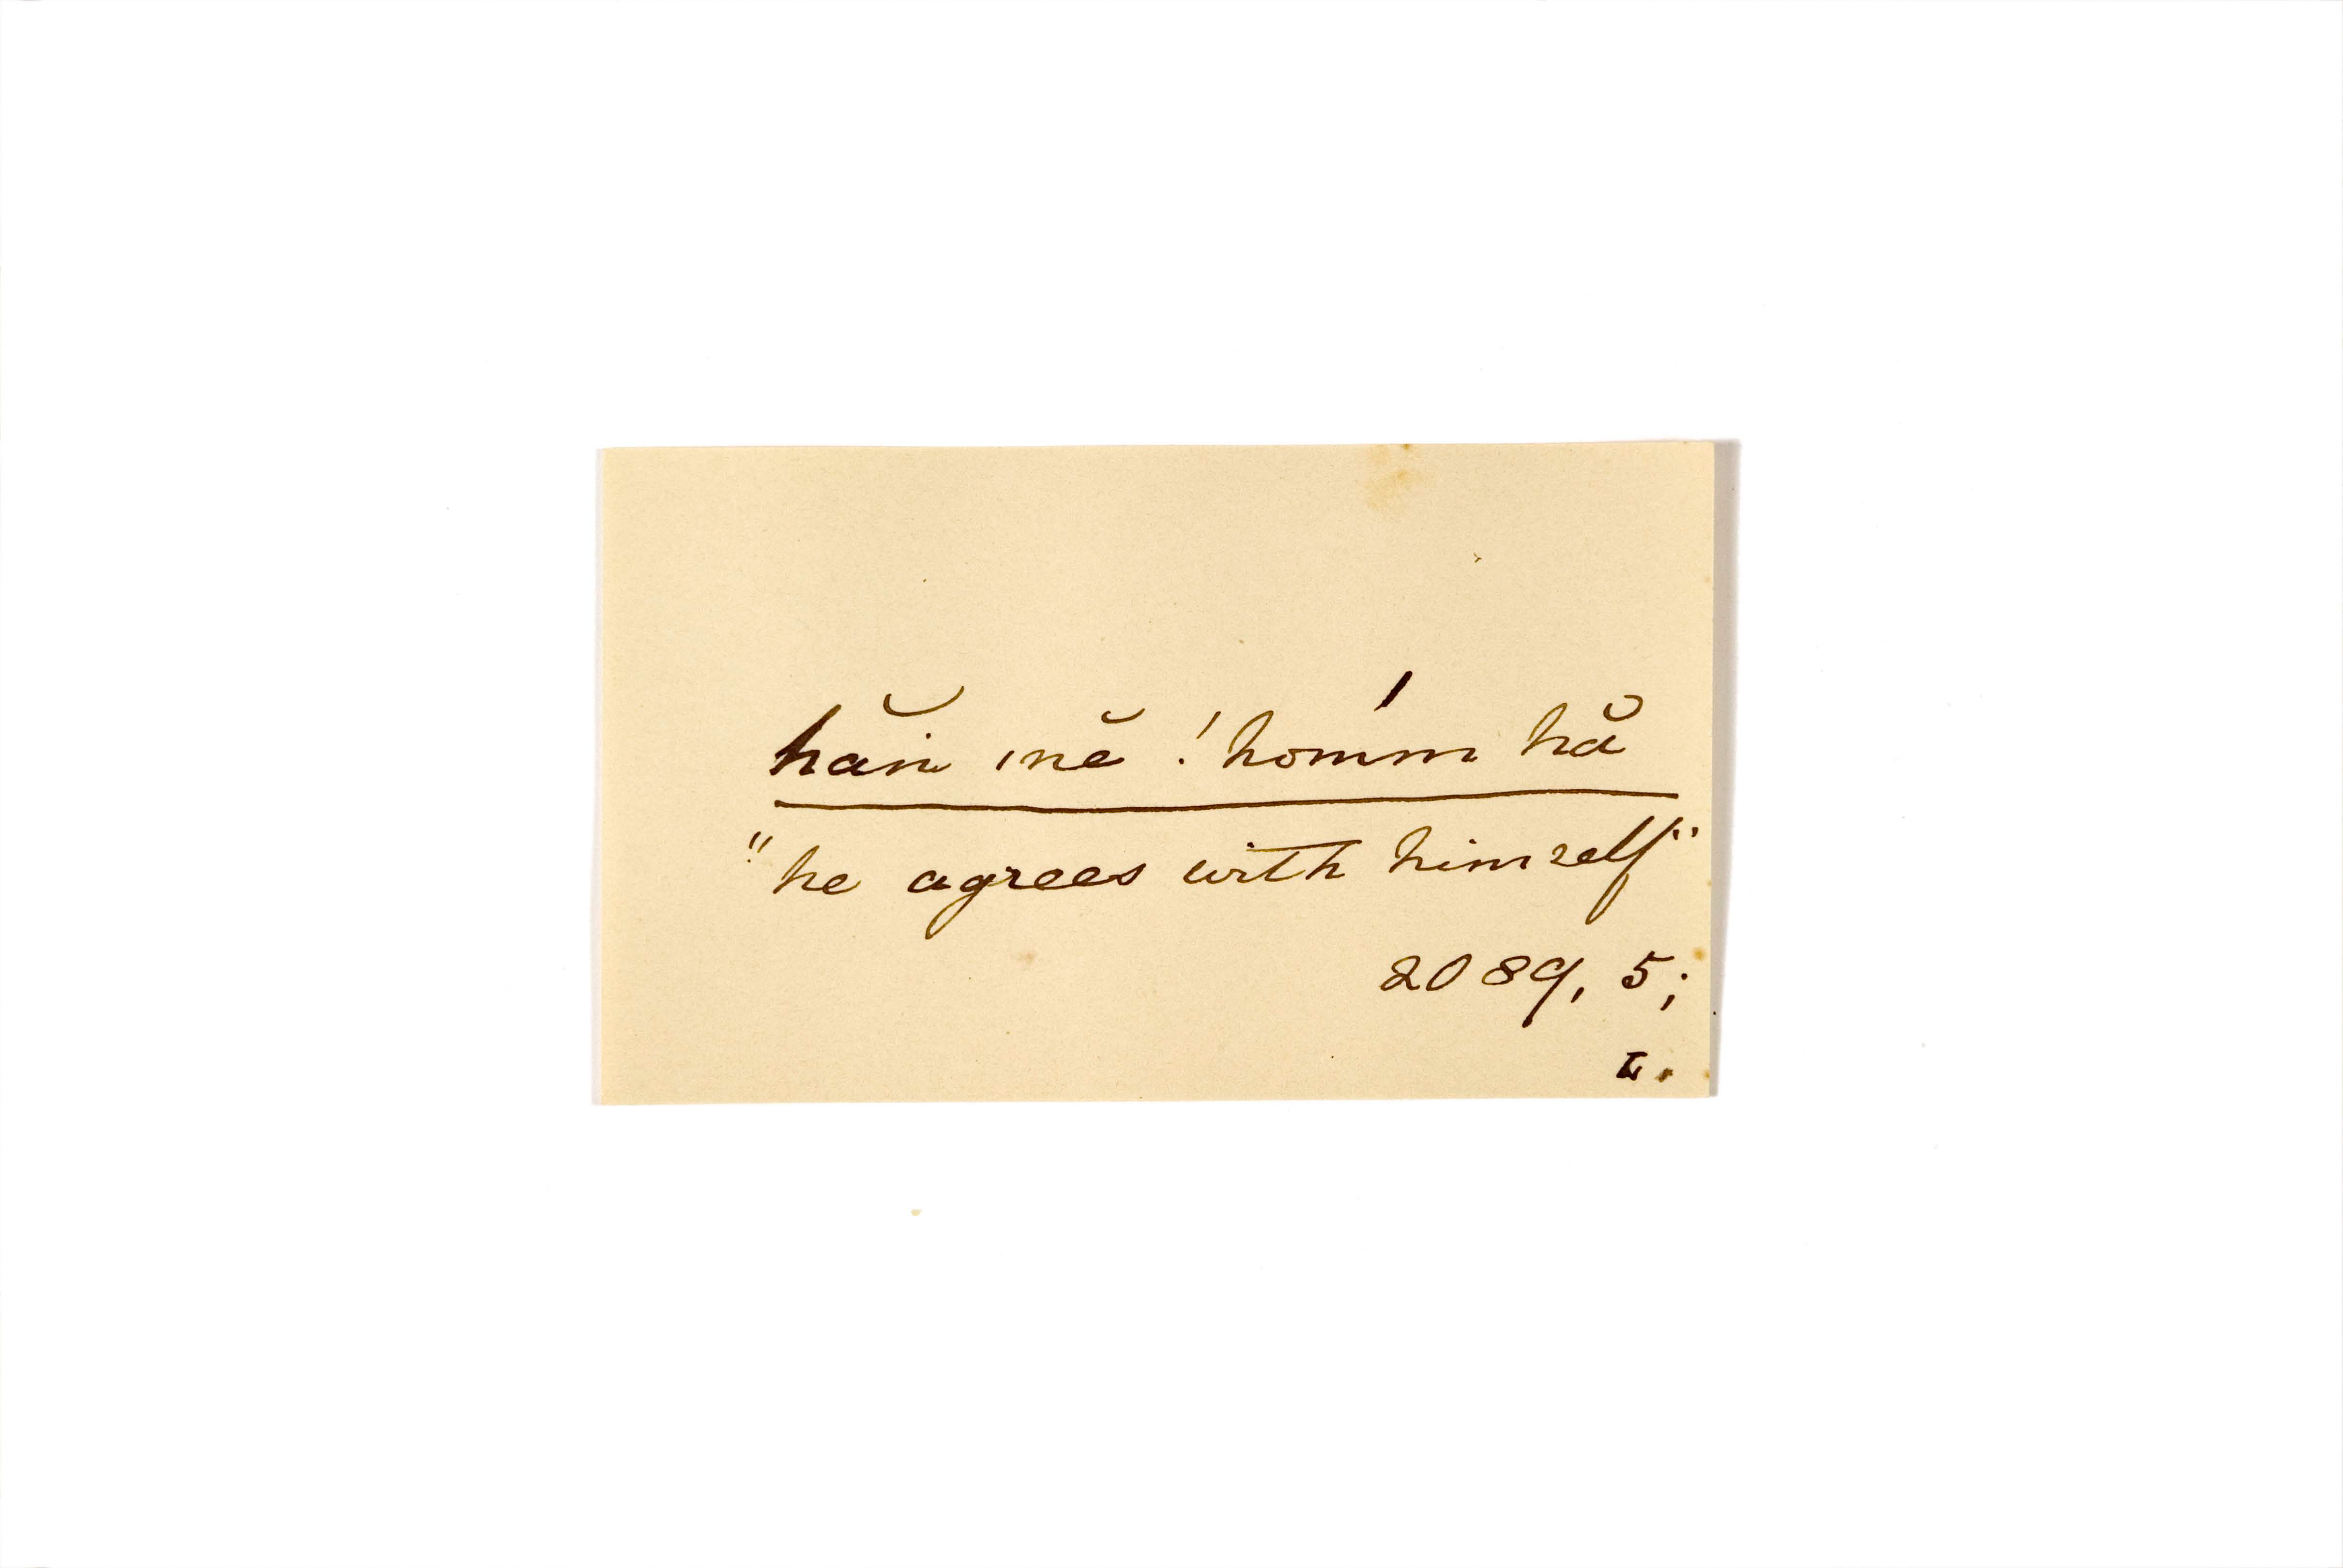 hăn ınĕ !homḿ hă
"he agrees with himself"
2089, 5;
L.